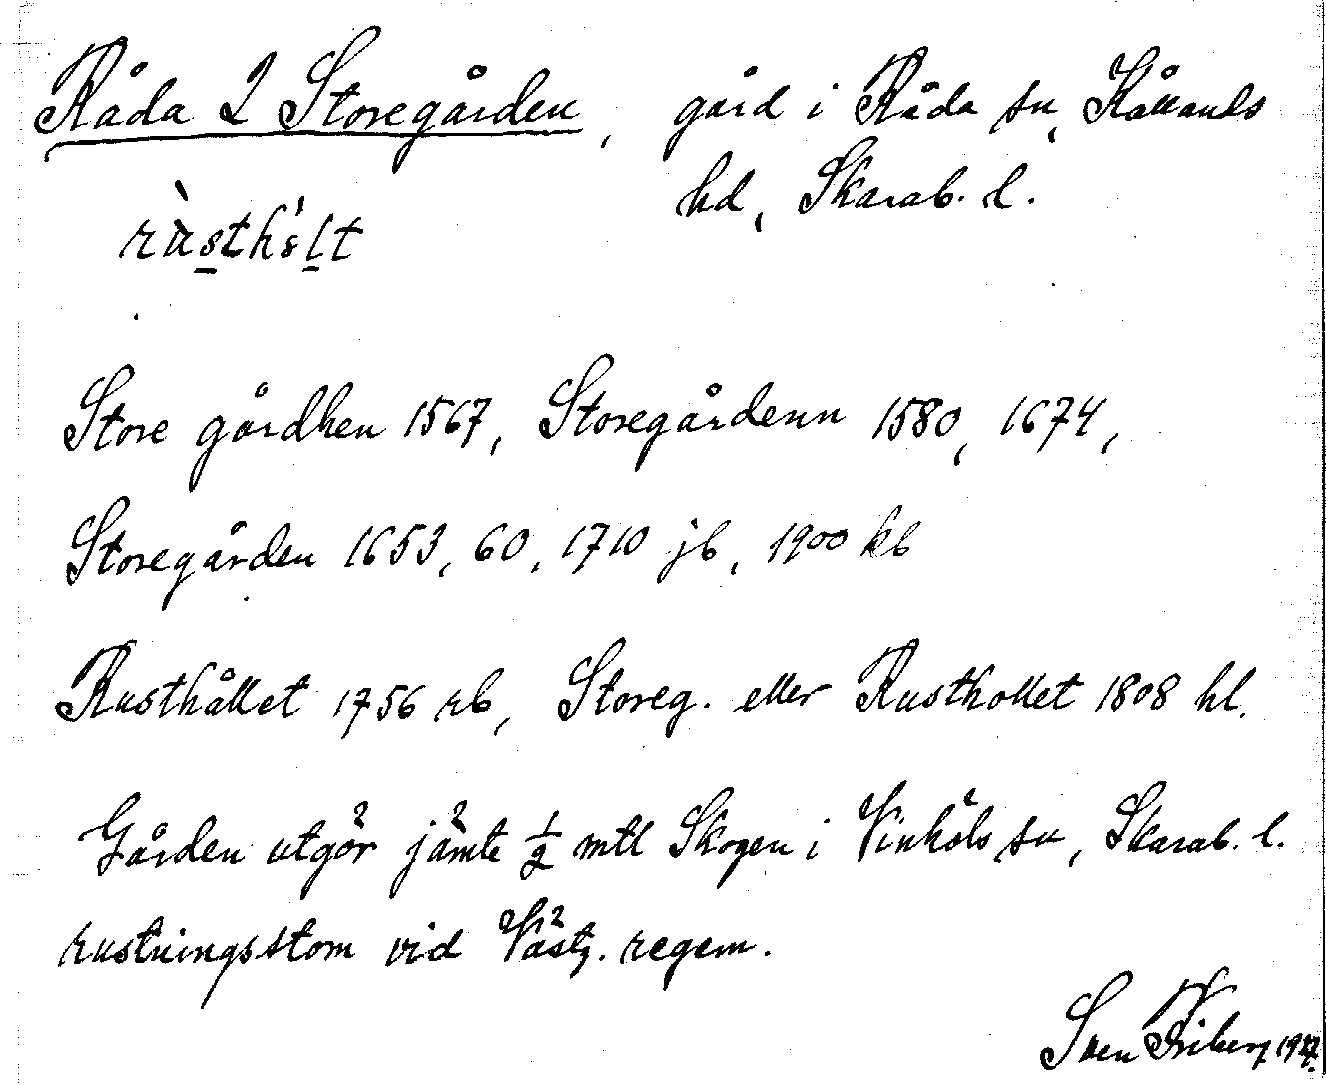 Råda 2 Storegården, gård i Råda sn, Kållands
hd, Skarab. l.
Store gårdhen 1567, Storegårdenn 1580, 1674,
Storegården 1653, 60, 1710 jb, 1900 kb
Rusthållet 1756 rb, Storeg. eller Rusthollet 1808 hl.
Gården utgör jämte 1/2 mtl Skogen i Vinköls sn, Skarab. l.
rustningsstom vid Västg. regem.
Sven Friberg